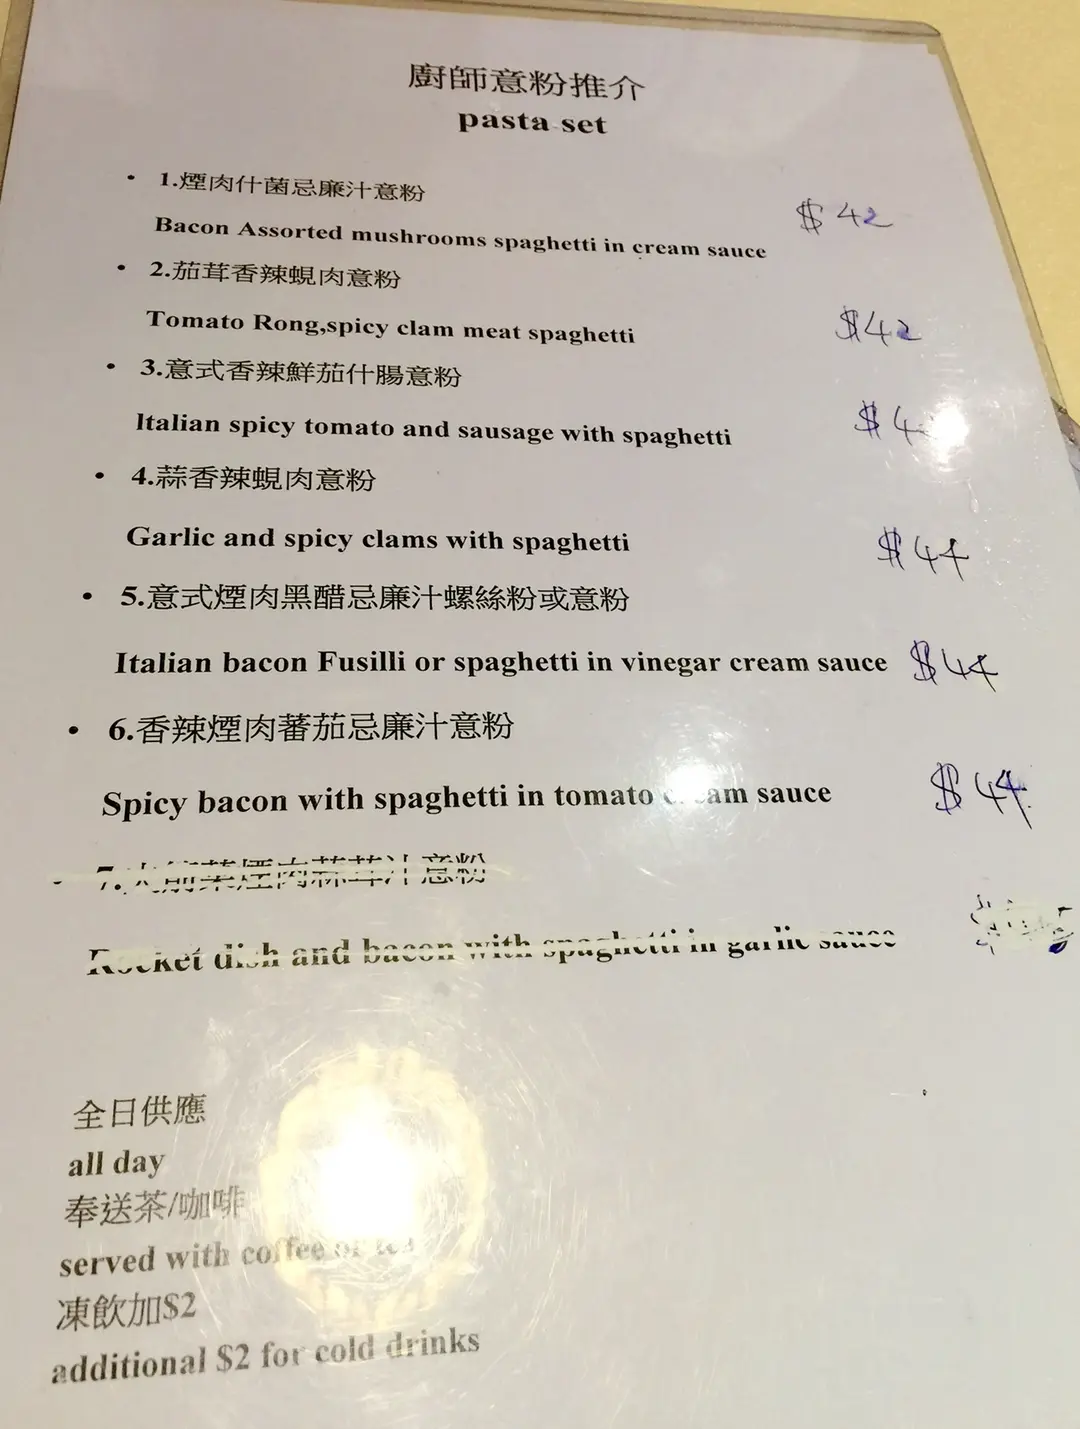 廚師意粉推介
pasta set
• 1.煙肉什菌忌廉汁意粉
Bacon Assorted mushrooms spaghetti in cream sauce $42
• 2.茄茸香辣蜆肉意粉
Tomato Rong,spicy clam meat spaghetti $42
• 3.意式香辣鮮茄什腸意粉
Italian spicy tomato and sausage with spaghetti
• 4.蒜香辣蜆肉意粉
Garlic and spicy clams with spaghetti $44
• 5.意式煙肉黑醋忌廉汁螺絲粉或意粉
Italian bacon Fusilli or spaghetti in vinegar cream sauce $44
• 6.香辣煙肉蕃茄忌廉汁意粉
Spicy bacon with spaghetti in tomato cream sauce $44
7. 煙肉 汁意粉
Rocket dish and bacon with spaghetti in garlic sauce
全日供應
all day
奉送茶/咖啡
served with coffee or tea
凍飲加$2
additional $2 for cold drinks